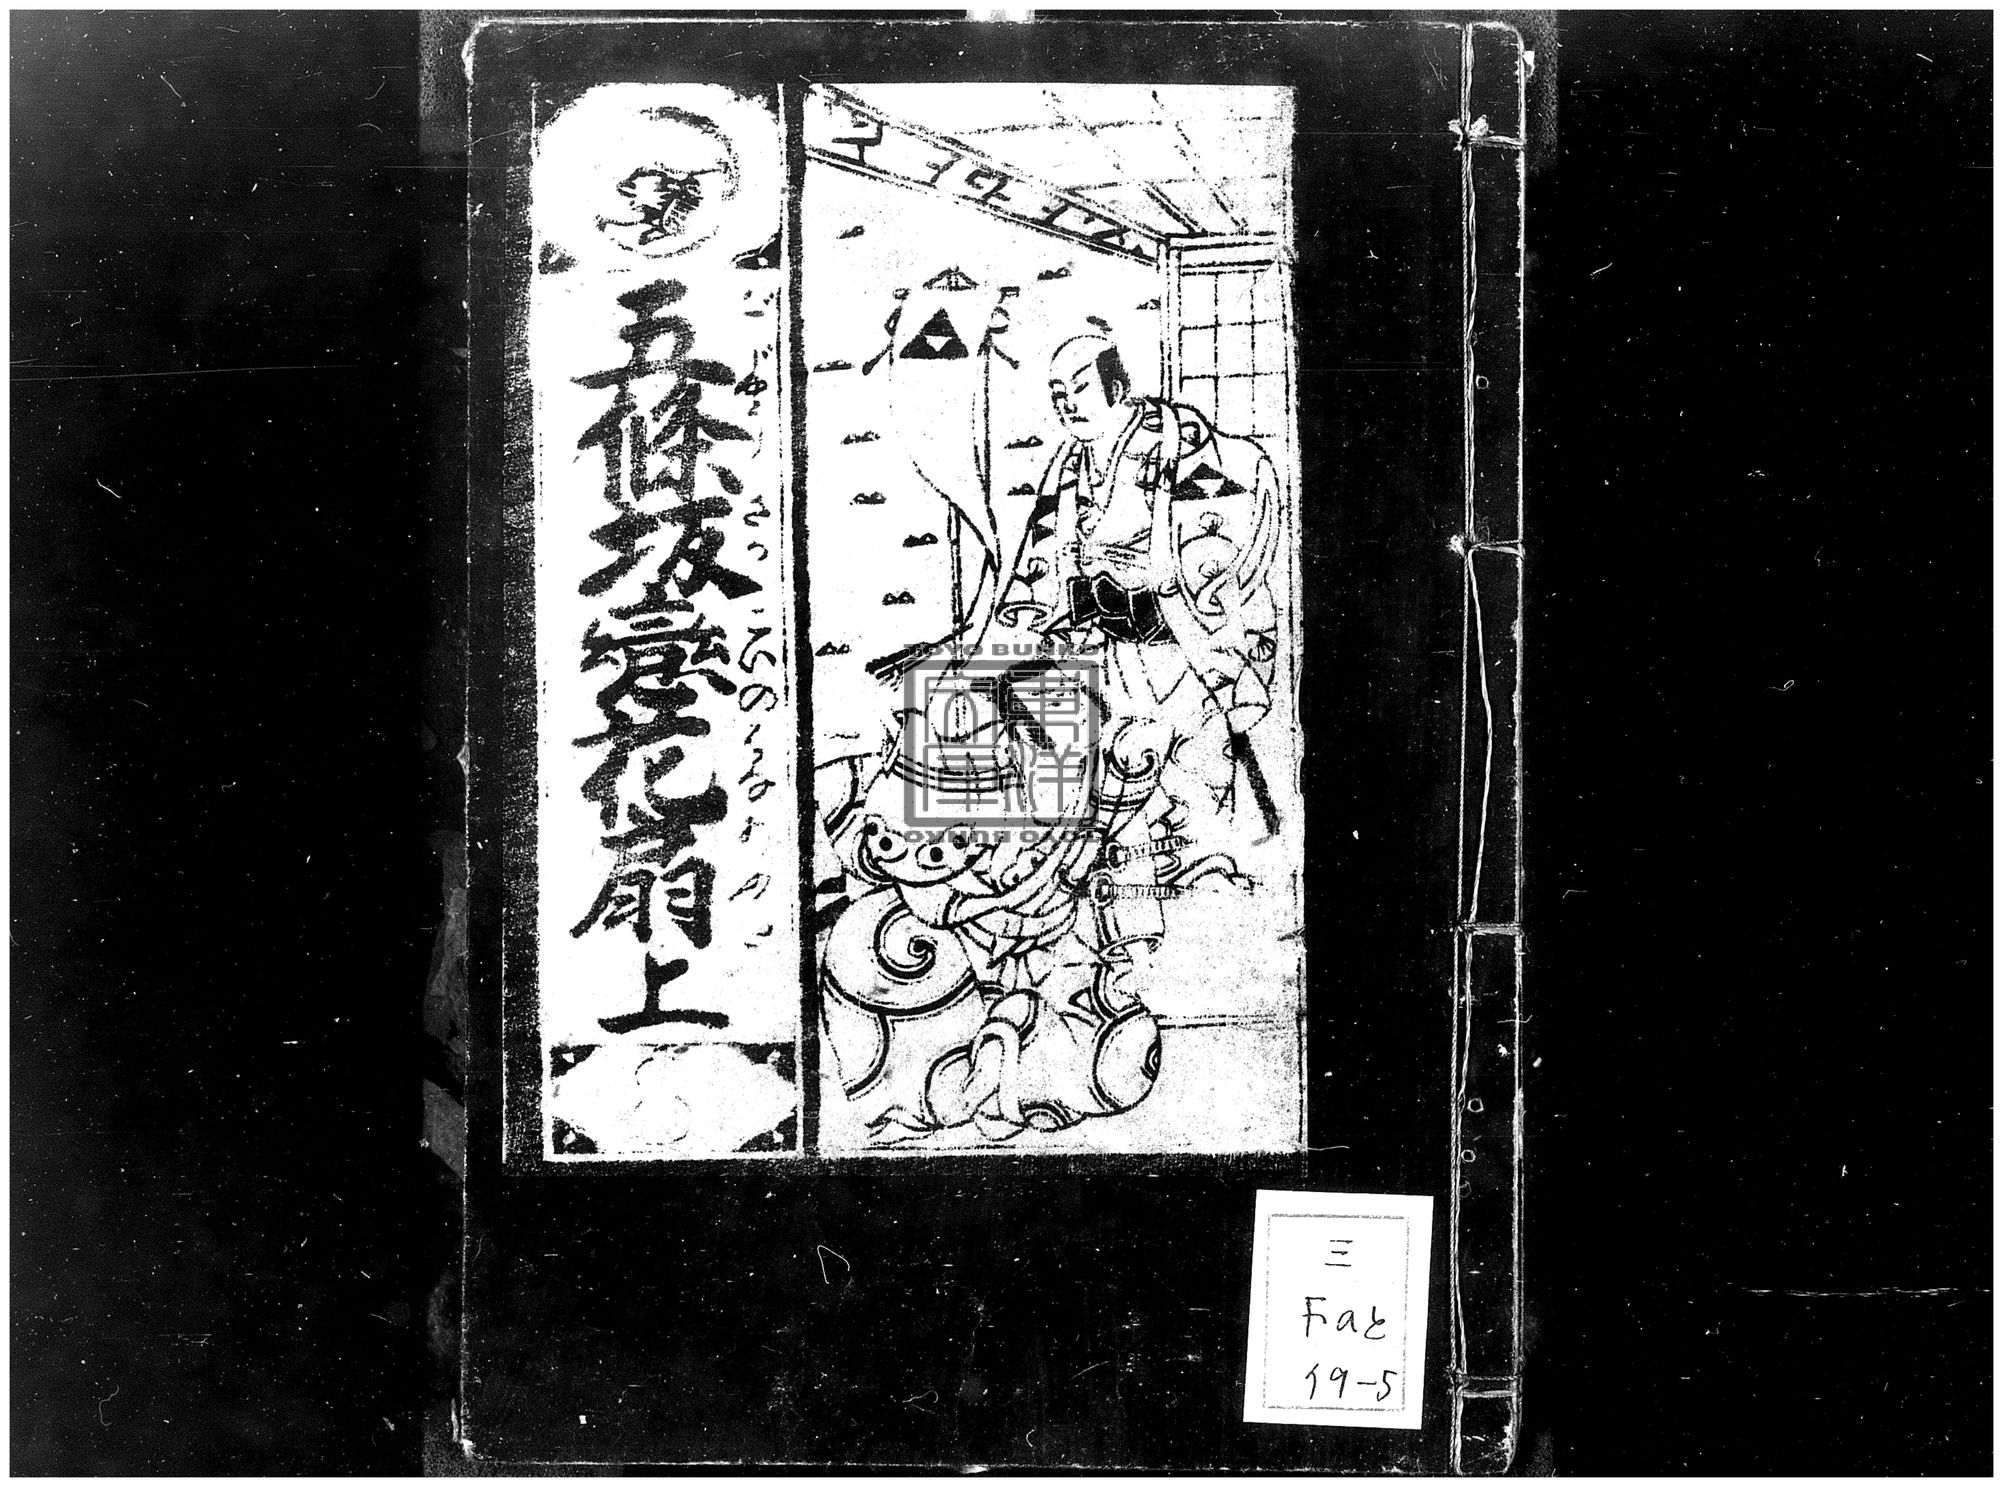 五條坂戀花扇 上
ごでうさか こひのはなあふぎ
TOYO BUNKO
東洋文庫
TOYO BUNKO
三
Faと
19-5